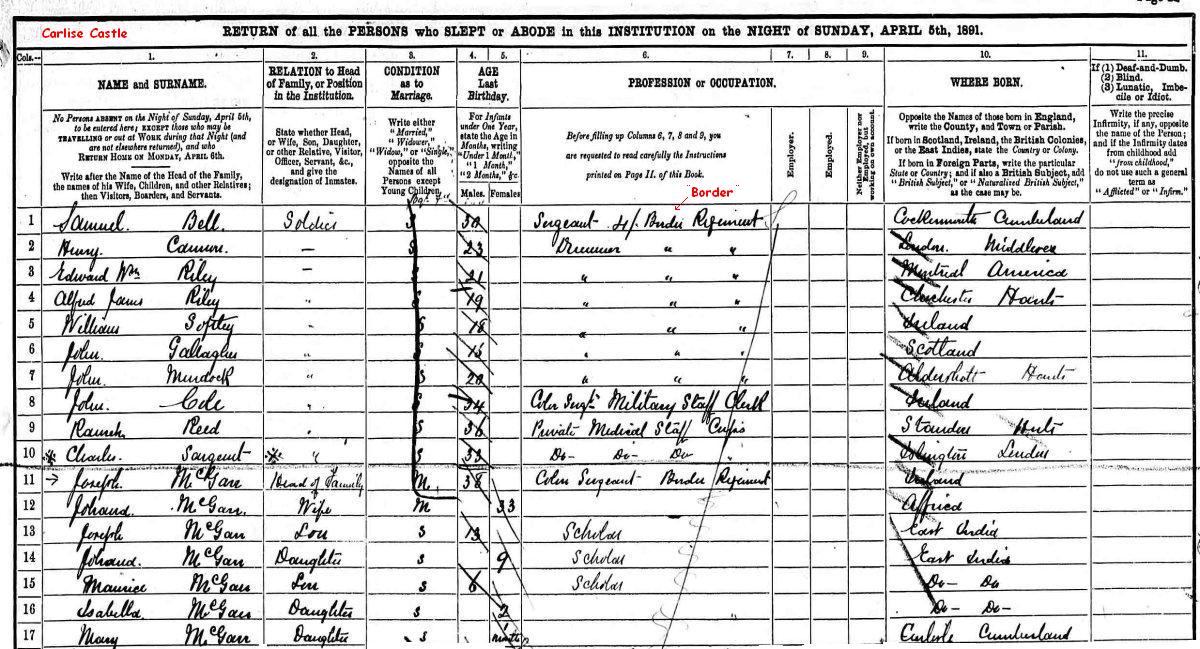 Carlise Castle
RETURN of all the PERSONS who SLEPT or ABODE in this INSTITUTION on the NIGHT of SUNDAY, APRIL 5th, 1891.
Cols.— 1. 2. 3. 4. 5. 6. 7. 8. 9. 10. 11.
NAME and SURNAME.
No Persons ABSENT on the Night of Sunday, April 5th,
to be entered here; EXCEPT those who may be
TRAVELLING or out at WORK during that Night (and
are not elsewhere returned), and who
RETURN HOME ON MONDAY, APRIL 6th.
Write after the Name of the Head of the Family,
the names of his Wife, Children, and other Relatives;
then Visitors, Boarders, and Servants.
RELATION to Head
of Family, or Position
in the Institution.
State whether Head,
or Wife, Son, Daughter,
or other Relative, Visitor,
Officer, Servant, &c.,
and give the
designation of Inmates.
CONDITION
as to
Marriage.
Write either
"Married,"
"Widower,"
"Widow," or "Single,"
opposite the
Names of all
Persons except
Young Children.
AGE
Last
Birthday.
For Infants
under One Year,
state the Age in
Months, writing
"Under 1 Month,"
"1 Month,"
"2 Months," &c
Males. Females
PROFESSION or OCCUPATION.
Before filling up Columns 6, 7, 8 and 9, you
are requested to read carefully the Instructions
printed on Page II. of this Book.
Employer.
Employed.
Neither Employer nor
Employed, but
working on own account.
WHERE BORN.
Opposite the Names of those born in England,
write the County, and Town or Parish.
If born in Scotland, Ireland, the British Colonies,
or the East Indies, state the Country or Colony.
If born in Foreign Parts, write the particular
State or Country; and if also a British Subject, add
"British Subject," or "Naturalised British Subject,"
as the case may be.
If (1) Deaf-and-Dumb.
(2) Blind.
(3) Lunatic, Imbe-
cile or Idiot.
Write the precise
Infirmity, if any, opposite
the name of the Person;
and if the Infirmity dates
from childhood add
"from childhood,"
do not use such a general
term as
"Afflicted" or "Infirm."
Border
1 Samuel. Bell. Soldier S 30 Sergeant Border Regiment Cockermouth Cumberland
2 Henry. — S 23 Drummer " " London. Middlesex
3 Edward Wm Riley — S 21 " " " Montreal America
4 Alfred James Riley " S 19 " " " Chichester Hants
5 William Softley " S 18 " " " Ireland
6 John. Gallagher " S 15 " " " Scotland
7 John. Murdock " S 20 " " " Aldershott Hants
8 John. Cole " S 34 Color Sergt. Military Staff Clerk Ireland
9 Reed " S 36 Private Medical Staff Corps Standon Herts
10 Charles. Sargent " S 33 Do- Do- Do- " Islington London
11 Joseph. McGarr Head of Family M 38 Color Sergeant Border Regiment Ireland
12 Johand. McGarr. Wife M 33 Affrica
13 Joseph McGarr Son S 13 Scholar East India
14 Johand. McGarr Daughter S 9 Scholar East India
15 Maurice McGarr Son S 6 Scholar Do- Do
16 Isabella. McGarr Daughter S 2 " Do- Do-
17 Mary McGarr Daughter S Carlisle Cumberland